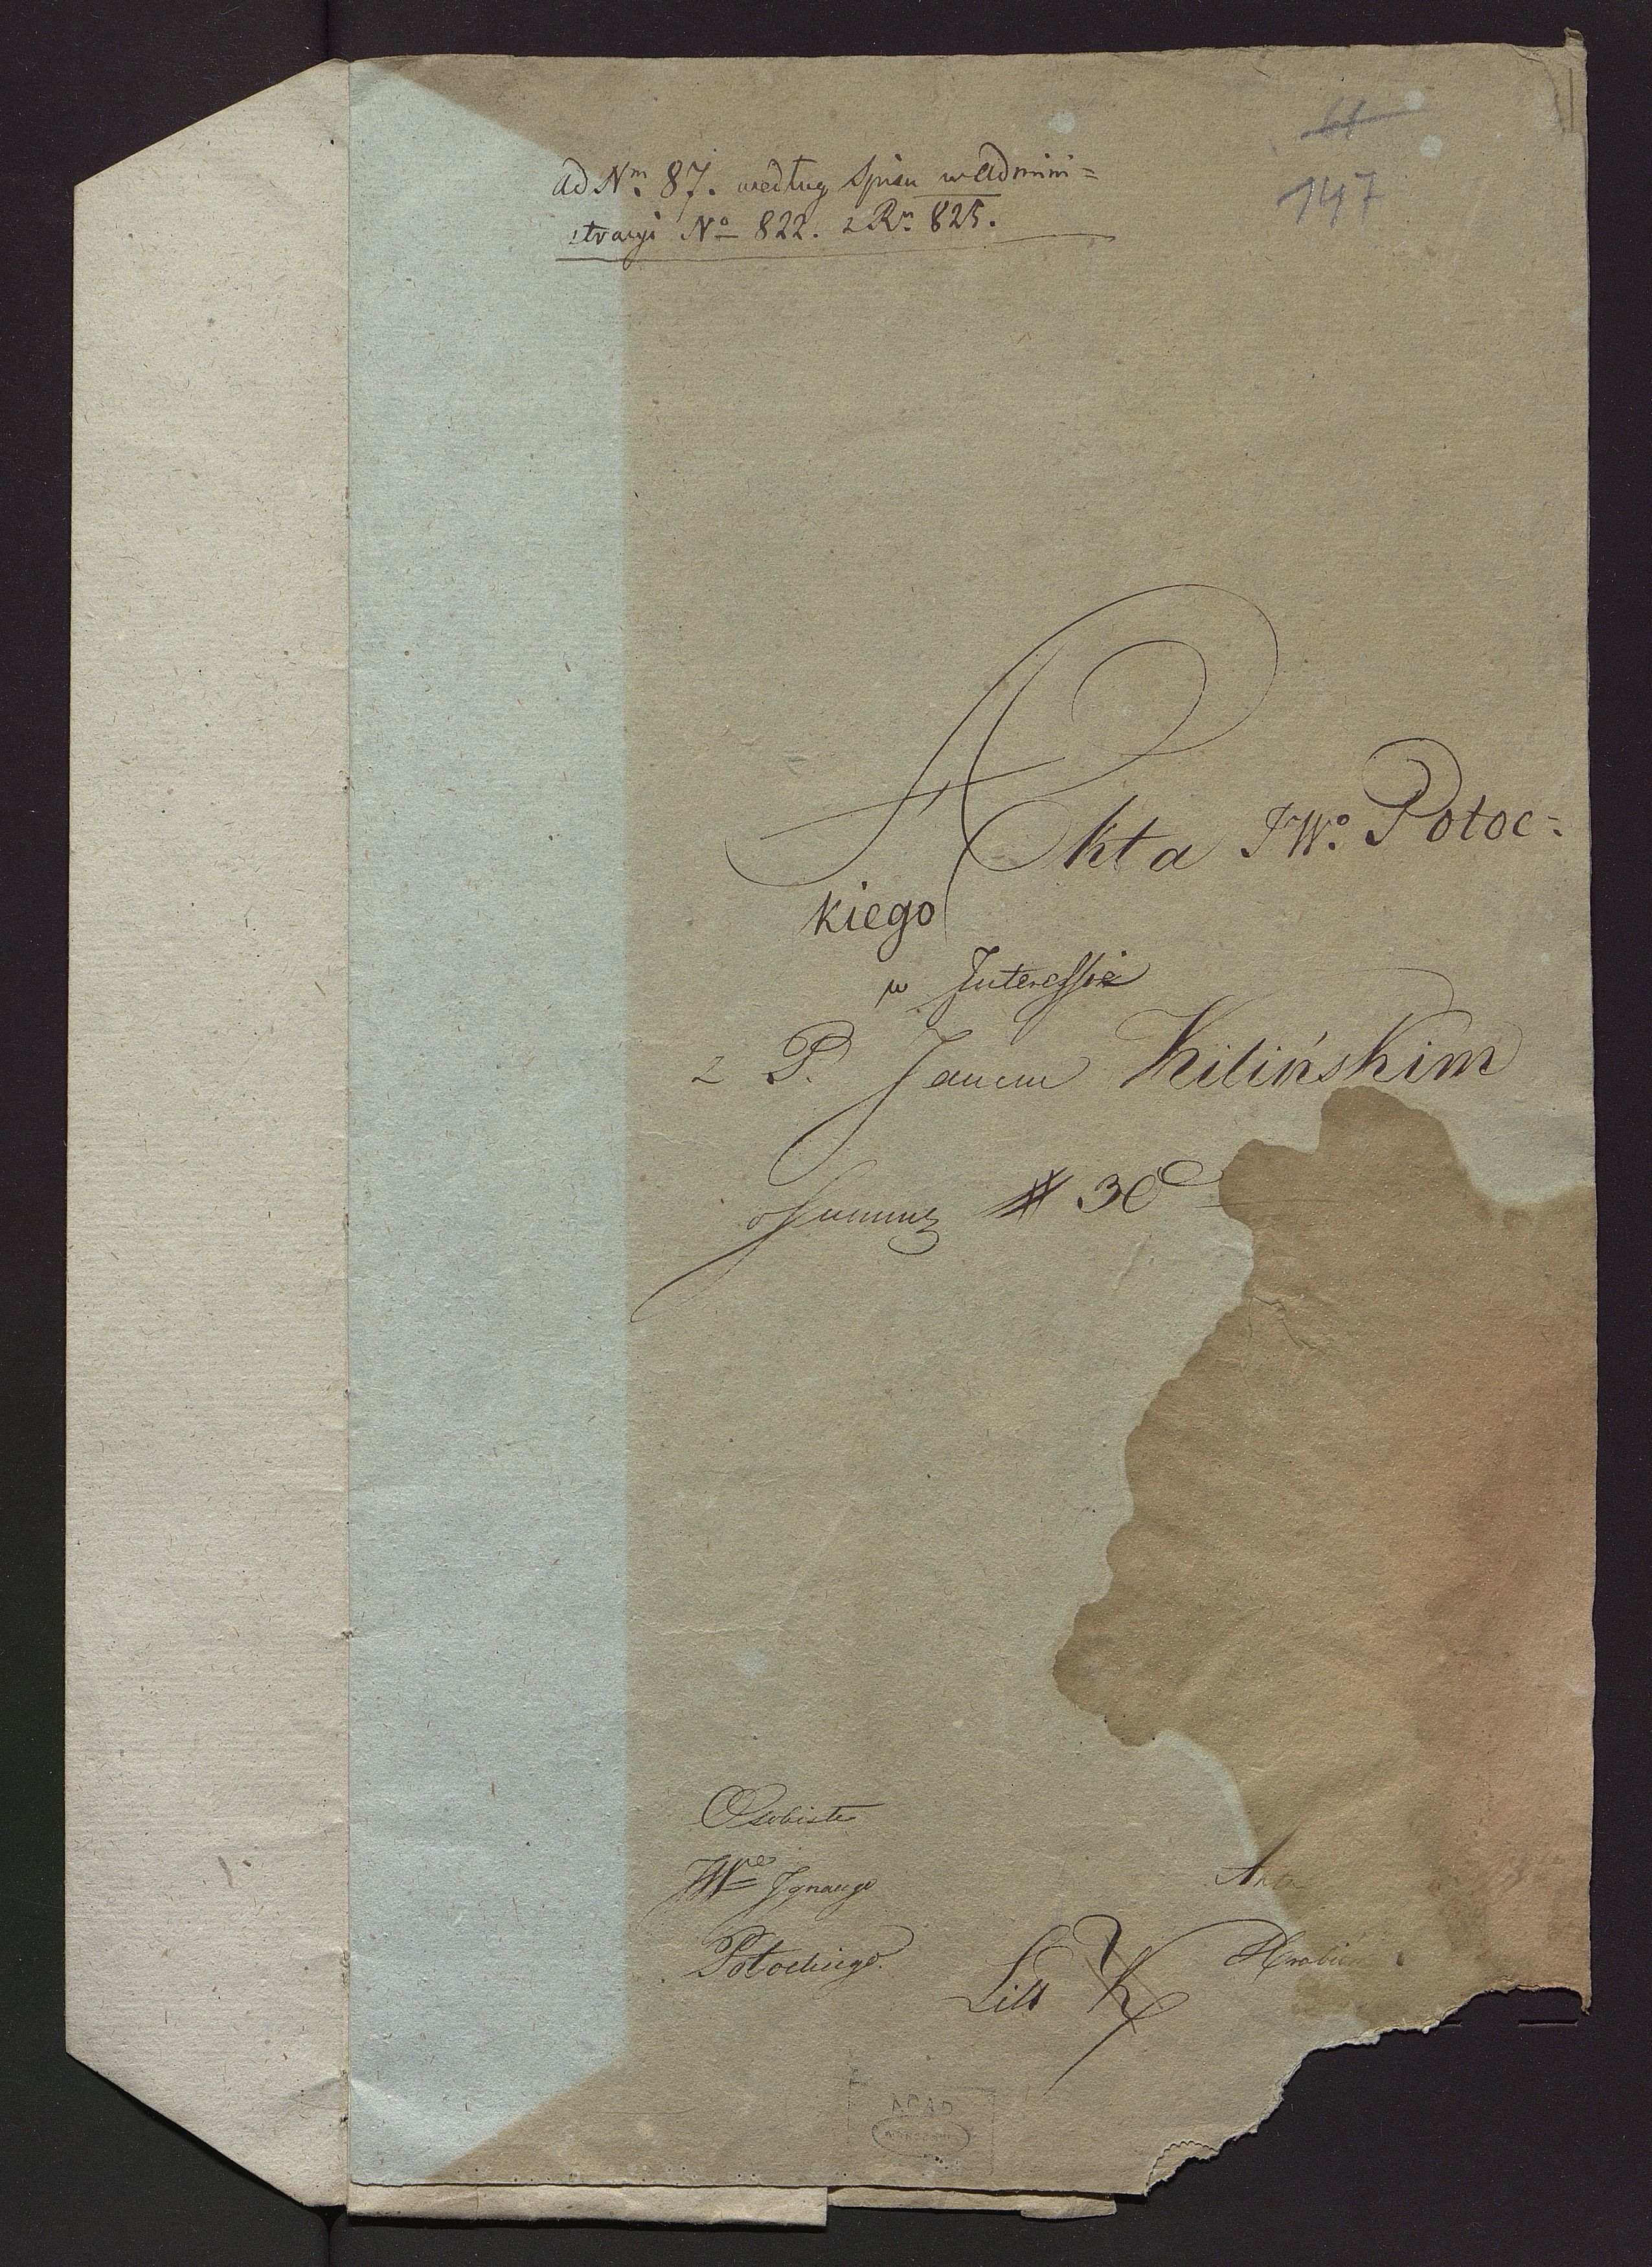 61
147
ad Nrn. 87. według spisu w Admini=
stracyi No 822. z Rn. 825.
Akta JWo. Potoc=
kiego
w Interessie
z P. Janem Kilińskim
o Summę # 30
Osobiste
JWgo Ignacego
Potockiego.
Akta
Hrabi
Litt K
AGAD